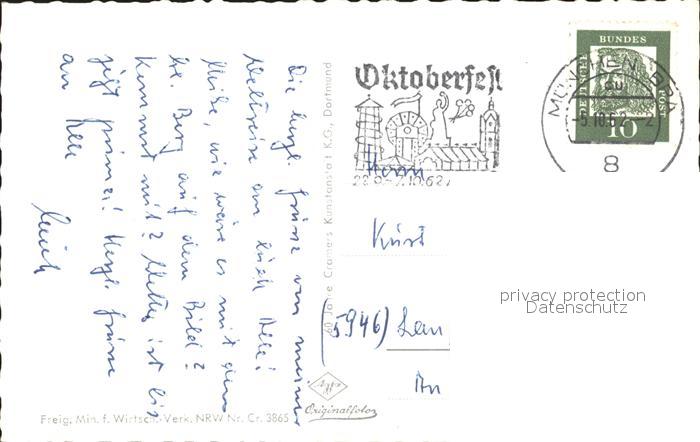 Die herzl. Grüsse von meiner
Weltreise an Euch Alle!
Heike, wie wäre es mit dem
Berg auf dem Bild?
Kommst mit? Wetter ist bis
jetzt prima! Herzl. Grüsse
an Alle
60 Jahre Cramers Kunstanstalt K.G., Dortmund
Oktoberfest
22.9.-7.10.62
DEUTSCHE
BUNDES
POST
10
MÜNCHEN BPA
-5.10.62-2
8
Herrn
Kurt
(5946)
An
privacy protection
Datenschutz
Agfa
Originalfoto
Freig. Min. f. Wirtsch.-Verk. NRW Nr. Cr. 3865